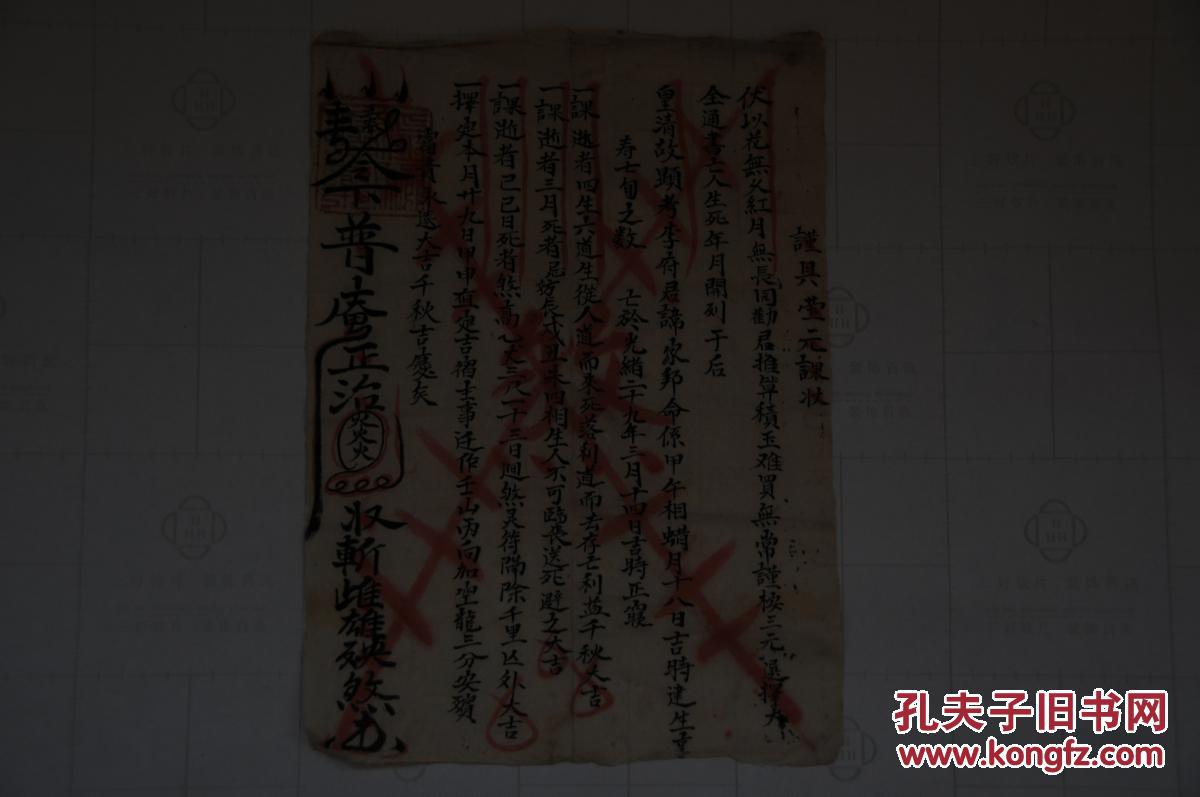 謹具瑩元課狀
伏以花無久紅月無長同勸君推算積玉难買無常謹按三元選擇大
全通書亡人生死年月開列于后
皇清故顯考李府君諱家邦命係甲午相蜡月十八日吉時建生
寿七旬之数 亡於光緒二十九年三月十四日吉時正寢
一課逝者四生六道生從人道而來死落利道而去存亡利益千秋大吉
一課逝者三月死者忌辰戌丑未四相生人不可臨喪送死避之大吉
一課逝者己巳日死者煞高丈三尺一十三日廻煞灵符隔除千里以外大吉
一擇定本月廿九日甲申直定吉褶主事迁作壬山丙向加坐龍三分央
永遠大吉千秋吉慶矣
令普庵正治 收斬雌雄殃煞
孔夫子旧书网
www.kongfz.com